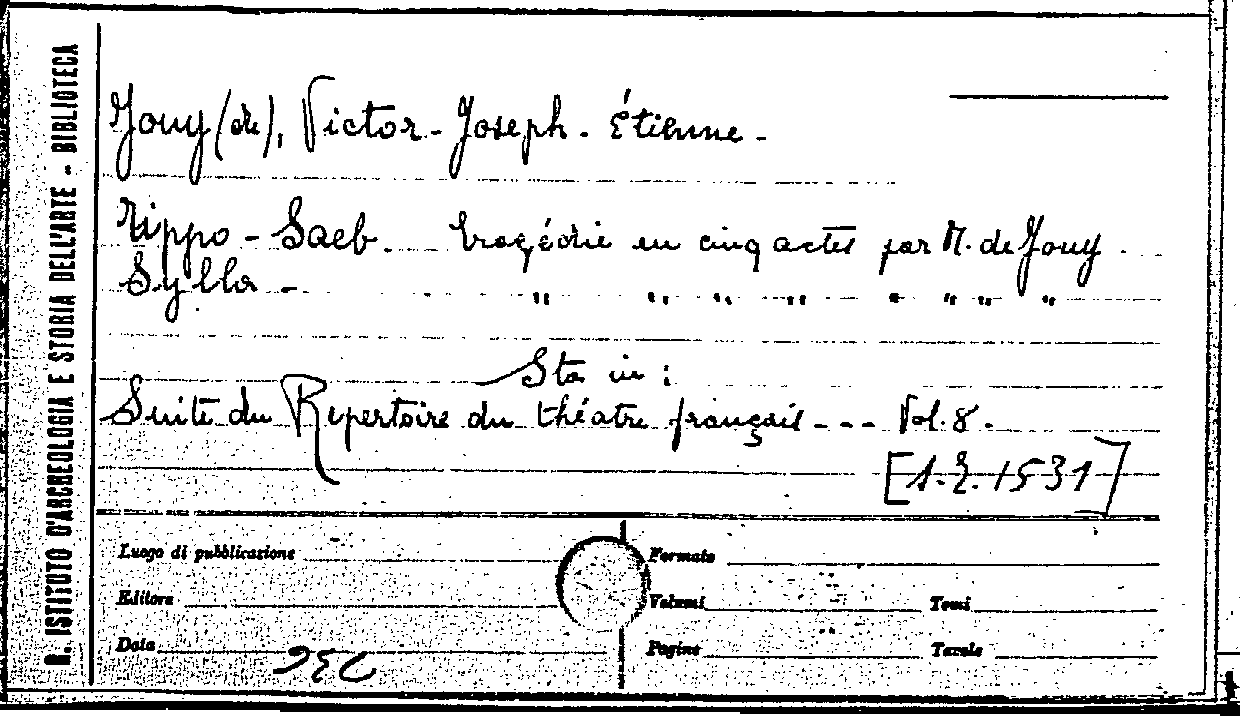 R. ISTITUTO D'ARCHEOLOGIA E STORIA DELL'ARTE - BIBLIOTECA
Jouy (de), Victor - Joseph - Étienne -
Tippo - Saeb. tragédie en cinq actes par M. de Jouy.
Sylla - " " " " " " " "
Sta in :
Suite du Répertoire du théatre français - - - Vol. 8.
[1. E. 1531]
Luogo di pubblicazione
Formato
Editore
Volumi
Tomi
Data
Pagine
Tavole